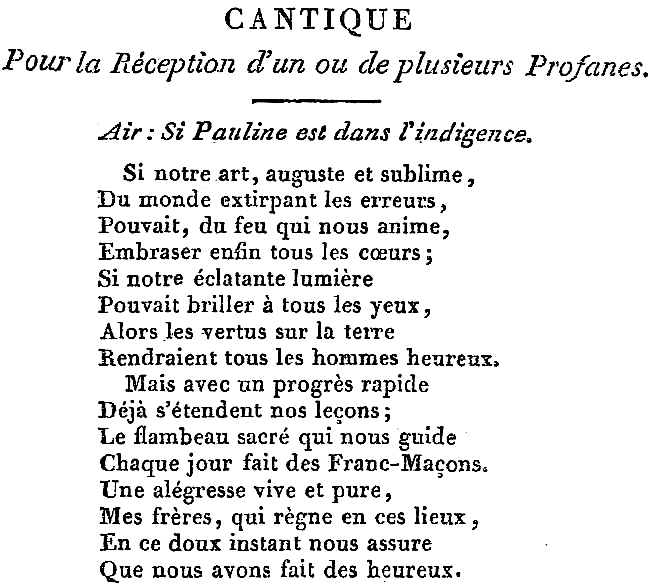 CANTIQUE
Pour la Réception d'un ou de plusieurs Profanes.
Air : Si Pauline est dans l'indigence.
Si notre art, auguste et sublime,
Du monde extirpant les erreurs,
Pouvait, du feu qui nous anime,
Embraser enfin tous les cœurs ;
Si notre éclatante lumière
Pouvait briller à tous les yeux,
Alors les vertus sur la terre
Rendraient tous les hommes heureux.
Mais avec un progrès rapide
Déjà s'étendent nos leçons ;
Le flambeau sacré qui nous guide
Chaque jour fait des Franc-Maçons.
Une alégresse vive et pure,
Mes frères, qui règne en ces lieux,
En ce doux instant nous assure
Que nous avons fait des heureux.